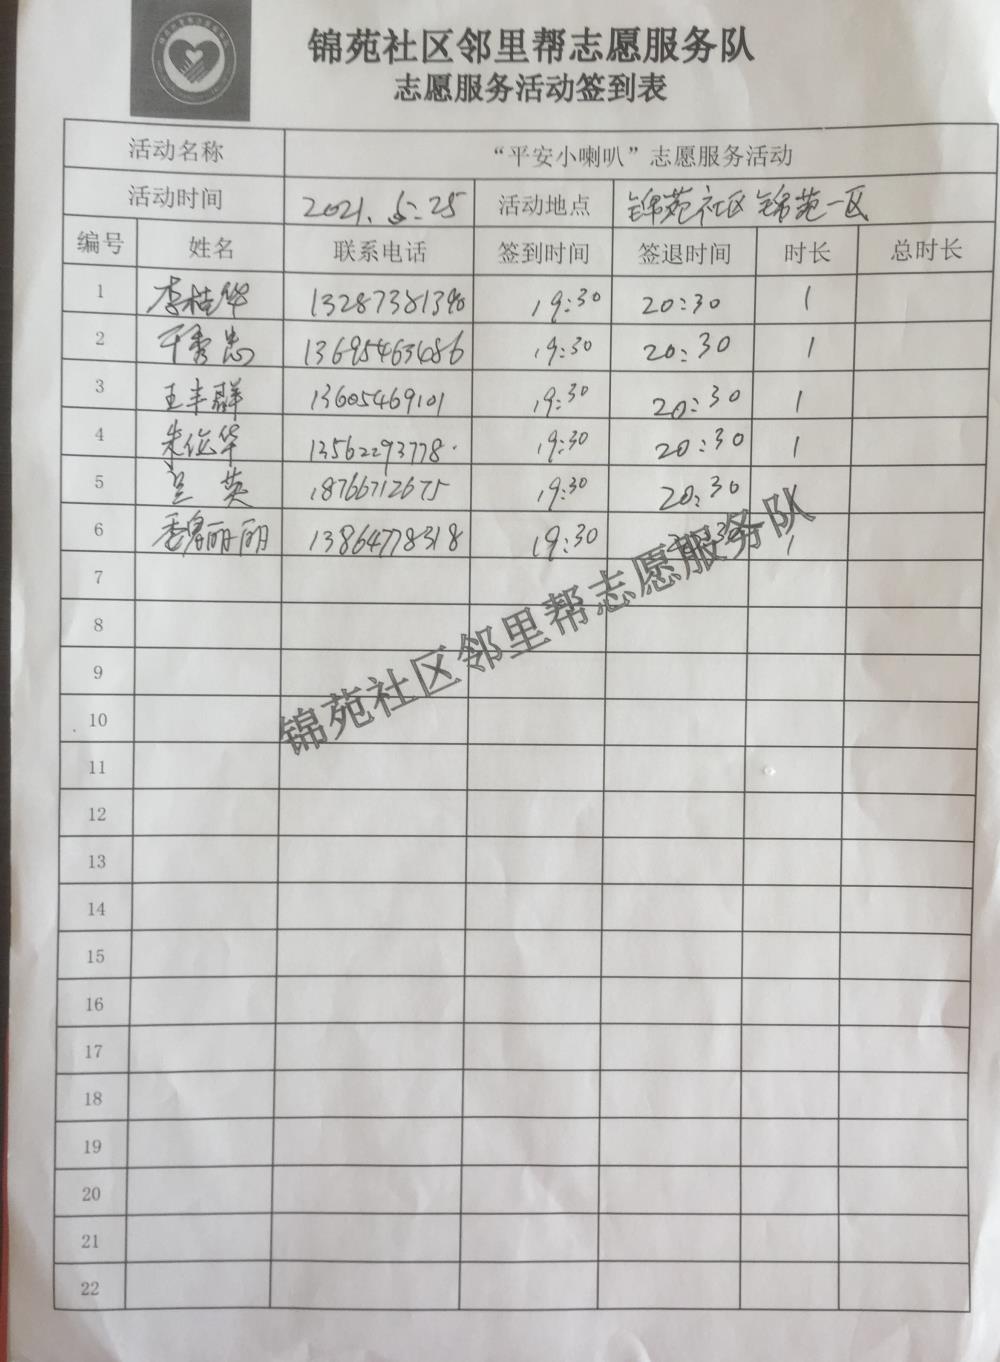 锦苑社区邻里帮志愿服务队
志愿服务活动签到表
活动名称 “平安小喇叭”志愿服务活动
活动时间 2021.5.25 活动地点 锦苑社区锦苑一区
编号 姓名 联系电话 签到时间 签退时间 时长 总时长
1 李桂华 13287381390 19:30 20:30 1
2 于秀忠 13695463486 19:30 20:30 1
3 王丰群 13605469101 19:30 20:30 1
4 朱华 13562293778. 19:30 20:30 1
5 兰英 18766712675 19:30 20:30 1
6 魏丽丽 13864778318 19:30 20:30 1
7
8
9
10
11
12
13
14
15
16
17
18
19
20
21
22
锦苑社区邻里帮志愿服务队